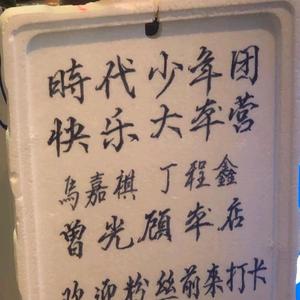 時代少年团
快乐大本营
馬嘉祺 丁程鑫
曾光顾本店
欢迎粉丝前来打卡